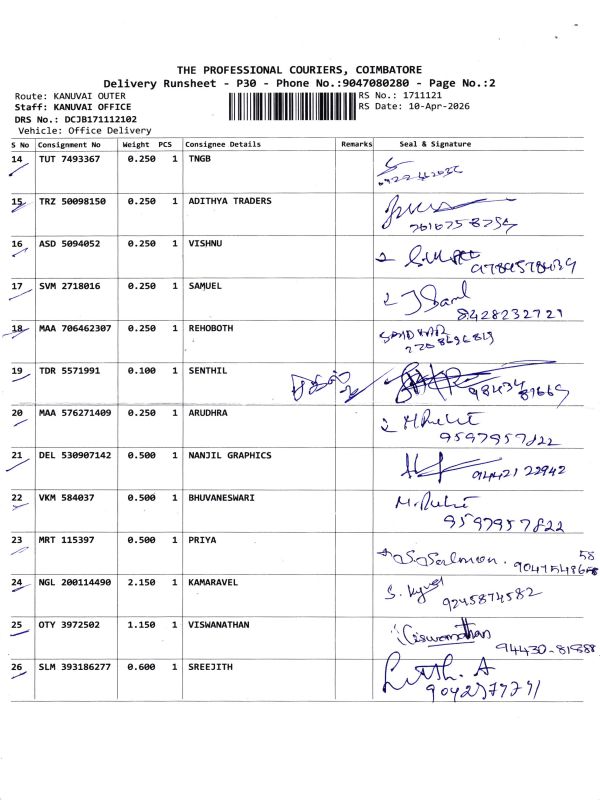 THE PROFESSIONAL COURIERS, COIMBATORE
Delivery Runsheet - P30 - Phone No.:9047080280 - Page No.:2
Route: KANUVAI OUTER RS No.: 1711121
Staff: KANUVAI OFFICE RS Date: 10-Apr-2026
DRS No.: DCJB171112102
Vehicle: Office Delivery
S No Consignment No Weight PCS Consignee Details Remarks Seal & Signature
14 TUT 7493367 0.250 1 TNGB
15 TRZ 50098150 0.250 1 ADITHYA TRADERS
16 ASD 5094052 0.250 1 VISHNU
9789578439
17 SVM 2718016 0.250 1 SAMUEL
8428232721
18 MAA 706462307 0.250 1 REHOBOTH
19 TDR 5571991 0.100 1 SENTHIL
20 MAA 576271409 0.250 1 ARUDHRA
9597957822
21 DEL 530907142 0.500 1 NANJIL GRAPHICS
94421 22942
22 VKM 584037 0.500 1 BHUVANESWARI
9597957822
23 MRT 115397 0.500 1 PRIYA
24 NGL 200114490 2.150 1 KAMARAVEL
9245874582
25 OTY 3972502 1.150 1 VISWANATHAN
Viswanathan
94430-81988
26 SLM 393186277 0.600 1 SREEJITH